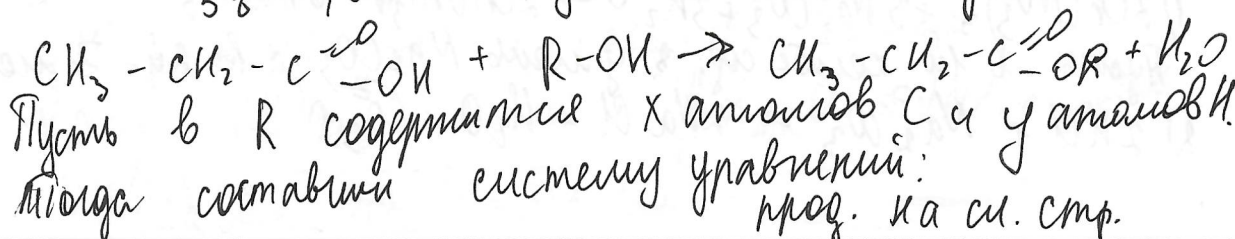 CH₃ - CH₂ - C =O -OH + R-OH → CH₃-CH₂-C =O -OR + H₂O
Пусть в R содержится x атомов C и y атомов H.
Тогда составим систему уравнений:
прод. на сл. стр.